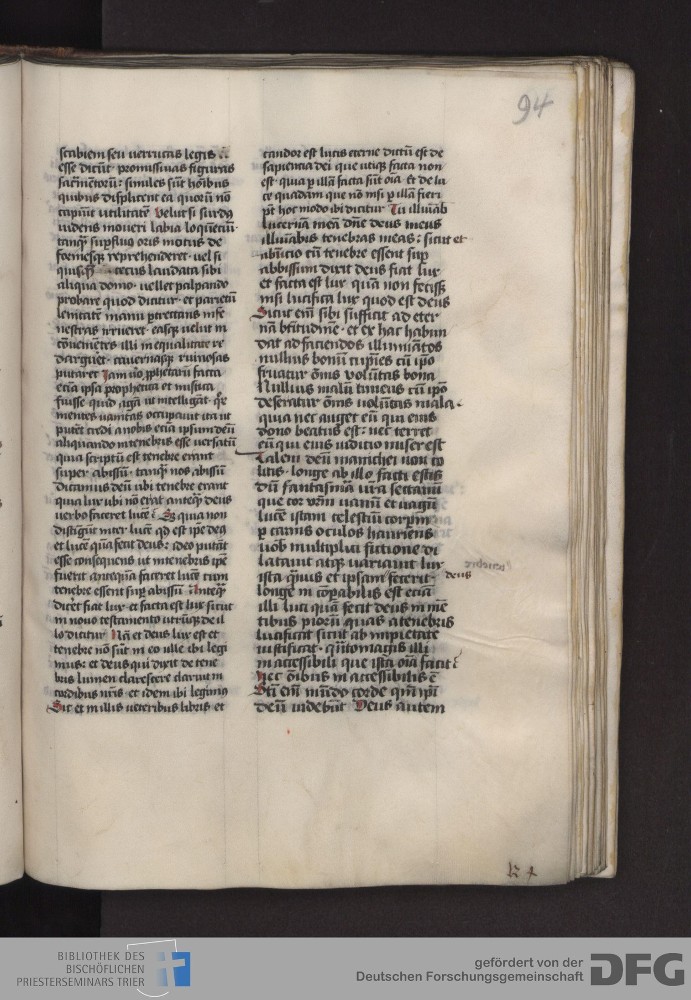 94
scabiem seu verrucas legis
esse dicūt · promissivas figuras
sacmētorū : similes sūt hōibus
quibus displicent ea quorū nō
capiūt utilitatē Velut si surdꝰ
videns moveri labia loquētiū
tanqꝫ supfluꝰ oris motus de
formesqꝫ reprehenderet · vel si
cecus laudata sibi
aliqua domo · vellet palpando
probare quod dicitur · et parietū
lenitatē manu ptrectans
nestras irrueret · easqꝫ velut in
convenientes illi inequalitate re
dargueret · cavernasqꝫ ruinosas
putaret Iam vō pphetarū facta
etiā ipsa prophetica et mistica
fuisse quid agā ut intelligāt
mentes vanitas occupavit ita ut
putēt credi a nobis etiā ipsum deū
aliquando in tenebris esse versatū
quia scriptū est tenebre erant
super abissū · tanqꝫ nos abissū
dicamus deū ubi tenebre erant
quia lux ubi nō erat anteqꝫ deus
verbo faceret lucē Sꝫ quia non
distigūt inter lucē qd est ipe deꝰ
et lucē quā fecit deus : ideo putāt
esse consequens ut in tenebris ipe
fuerit antequā faceret lucē cum
tenebre essent sup abissū Anteqꝫ
dicēt fiat lux · et facta est lux sicut
in novo testamento utrūqꝫ de il
lo dicitur Nā et deus lux est et
tenebre nō sūt in eo ulle ibi legi
mus : et deus qui dixit de tene
bris lumen clarescere claruit in
cordibus nr̄is · et idem ibi legimꝰ
Sic et in illis veteribus libris et
candor est lucis eterne dictū est de
sapiencia dei que utiqꝫ facta non
est · quia p illā facta sūt oīa Et de lu
ce quadam que nō nisi p illā fieri
pt hoc modo ibi dicitur Tu illuīab
lucernā meā dn̄e deus meus
illuīabis tenebras meas : sicut et
abinicio cū tenebre essent sup
abbissum dixit deus fiat lux
et facta est lux quā non fecisꝫ
nisi lucifica lux quod est deus
Sicut eīm sibi sufficit ad eter
nā btitudinē · et ex hac habun
dat ad faciendos illumiātos
nullius bonū cupiēs cū ipo
fruatur ōmis volūtas bona
Nullius malū timens cū ipō
deseratur ōmis volūtas mala ·
quia nec auget eū qui eius
dono beatus est : nec terret
eū qui eius iudicio miser est
Talem deū manichei non co
litis · longe ab illo facti estis
Dū fantasmata vr̄a sectamī
que cor vr̄m vanū et vagū
lucē istam celestiū corpm̄
p carnis oculos hauriens
vob multiplici fictione di
latavit atqꝫ variavit lux
ista quis et ipsam fecerit · deus
longe in cōpabilis est etiā
illi luci quā fecit deus in mē
tibus piorū quas a tenebris
lucificat sicut ab impietate
iustificat · qūtomagis illi
in accessibili que ista oīa facit
Nec ōibus in accessibilis ē
Bti eīm mūdo corde qm̄ ipi
deū videbūt Deus autem
BIBLIOTHEK DES
BISCHÖFLICHEN
PRIESTERSEMINARS TRIER
gefördert von der
Deutschen Forschungsgemeinschaft
DFG